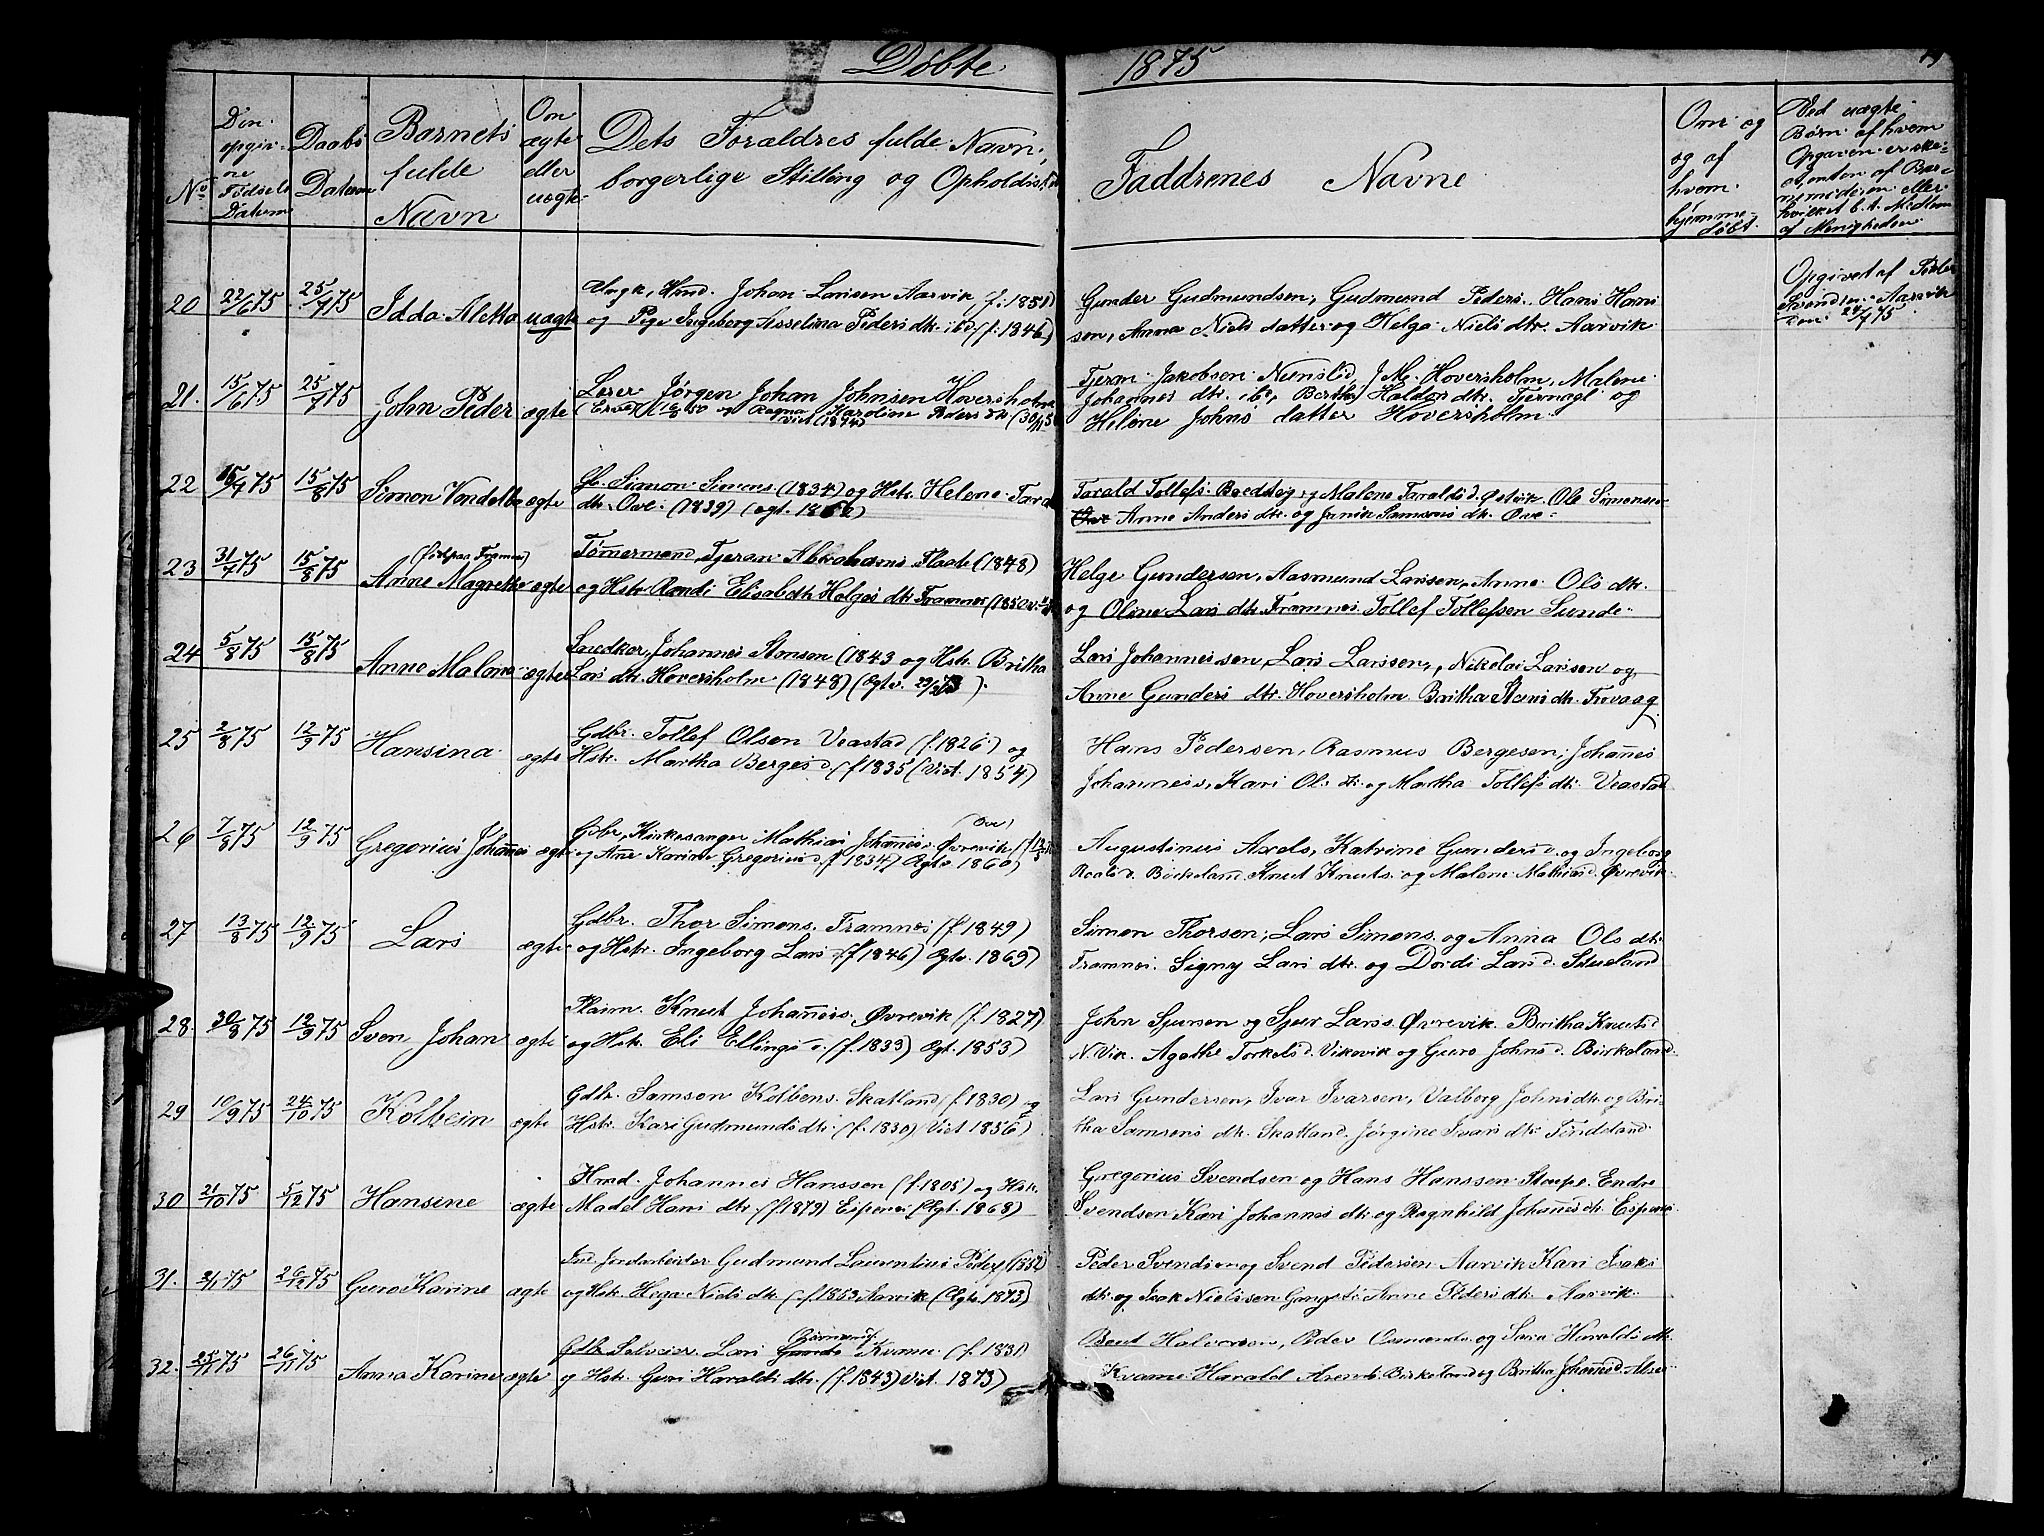 Döbte 1875
No
Den opgivne Födsels Datum
Daabs Datum
Barnets fulde Navn
Om ægte eller uægte
Dets Forældres fulde Navn,
borgerlige Stilling og Opholdsst.
Faddrenes Navne
Om og
og af
hvem
hjemme-
döbt.
Ved uægte
Børn af hvem
Opgaven er ske-
et, enten af Bar-
nemoderen eller
hvilket b. A. Medlem
af Menigheden
20 22/6 75 25/7 75 Idda Aletta uægte
Ungk, Hmd. Johan Larsen Aarvik (f. 1851)
og Pige Ingeborg Asselina Peders dtr. ibd (f. 1846)
Gunder Gudmundsen, Gudmund Peders. Hans Han-
sen, Anna Niels datter og Helga Niels dtr. Aarvik
Opgivet af Peder
Svendsen Aarvik
den 24/7 75
21. 15/6 75 25/7 75 John Peder ægte
Lærer Jörgen Johan Johnsen Hoversholm
Karoline Peders dtr.
Viet (1874)
Jakobsen J. M. Hoversholm, Malene
Johannes dtr. ibd, Bertha Haldor dtr. Tjernagl og
Helene Johns datter Hoversholm
22 15/7 75 15/8 75 Simon Vendelbo ægte
Gb. Simon Simons (1834) og Hstr. Helene Tarals
dtr. Ove. (1839) (ægt. 1856)
Tarald Tollefs. Malene Taralds d. Østvik Ole Simonsen
Anne Anders dtr. og Samsons dtr. Ove
23 31/7 75 15/8 75 (född paa Framnes) Anne Magrethe ægte
Tömermand, Tjeran Abrahams. Flaate (1848)
og Hstr. Randi Elisabeth Helges dtr. Framnes (1850
Helge Gundersen, Aasmund Larssen, Anne Ols dtr.
og Oline Lars dtr. Framnes. Tollef Tollefsen Sunde
24 5/8 75 15/8 75 Anne Malene ægte
Snedker, Johannes Stensen (1843 og Hstr. Britha
Lars dtr. Hoversholm (1848) (Ægtv. 73).
Lars Johannessen, Lars Larssen, Nikolai Larssen og
Anne Gunders dtr. Hoversholm. Britha Stens dtr. Frovaag
25 2/8 75 12/9 75 Hansina ægte
Gdbr. Tollef Olsen Veastad (f. 1826) og
Hstr. Martha Berges d. (f 1835 (Viet. 1854)
Hans Pedersen, Rasmus Bergesen, Johañes
Johannes s, Kari Ols dtr. og Martha Tollefs dtr. Veastad
26 7/8 75 12/9 75 Gregorius Johañes ægte
Gdbr, Kirkesanger Mathias Johañes. Øvrevik (Ove)
og Ane Karine Gregorius d. (f 1834) Ægtv 1860)
Augustinus Axels, Katrine Gunders d. og Ingeborg
Roalds d. Birkeland Knut Knuts. og Malene Mathias d. Øvrevik
27 13/8 75 12/9 75 Lars ægte
Gdbr. Thor Simons. Framnes (f. 1849)
og Hstr. Ingeborg Lars d. (f 1846) Ægtv. 1869)
Simon Thorsen, Lars Simons. og Anna Ols dtr.
Framnes. Signy Lars dtr. og Dordi Lars d. Stueland
28. 30/8 75 12/9 75 Sven Johan ægte
Plasm. Knut Johañes. Øvrevik (f. 1827)
og Hstr. Eli Ellings d. (f. 1833) Ægt. 1853)
John Sjursen og Sjur Larss. Øvrevik. Britha Knuts d
N. Vik. Agathe Torkels d. Vikevik og Guro Johns d. Birkeland
29 10/9 75 24/10 75 Kolbein ægte
Gdbr. Samson Kolbens. Skatland (f. 1830) og
Hstr. Kari Gudmunds dtr. (f. 1830) Viet 1856)
Lars Gundersen, Ivar Ivarsen, Valborg Johns dtr. og Bri-
tha Samsons dtr. Skatland. Jörgine Ivars dtr. Tindeland
30 21/10 75 5/12 75 Hansine ægte
Hmd. Johannes Hanssen (f. 1805) og Hstr.
Madel Hans dtr. Espenes (Ægt. 1868)
Gregorius Svendsen og Hans Hanssen Stuepe. Endre
Svendsen Kari Johannes dtr. og Ragnhild Johañes dtr. Espenes
31. 75 26/12 75 Guro Karine ægte
Jordarbeider Gudmund Laurentius Peders
og Hstr. Niels dtr. (f. 1853 Aarvik (Ægtv. 1873)
Peder Svendsen og Svend Pedersen Aarvik Kari Isaks
dtr. og Isak Nielssen Anne Peders dtr. Aarvik
32. 25/11 75 26/11 75 Anna Karine ægte
Lars Kvame (f. 1831)
og Hstr. Guri Haralds dtr. (f 1843) Viet. 1873)
Bent Halvorsen, Peder Osmunds. og Sara Haralds dtr.
Kvame Harald Birkeland og Britha Johañes d.